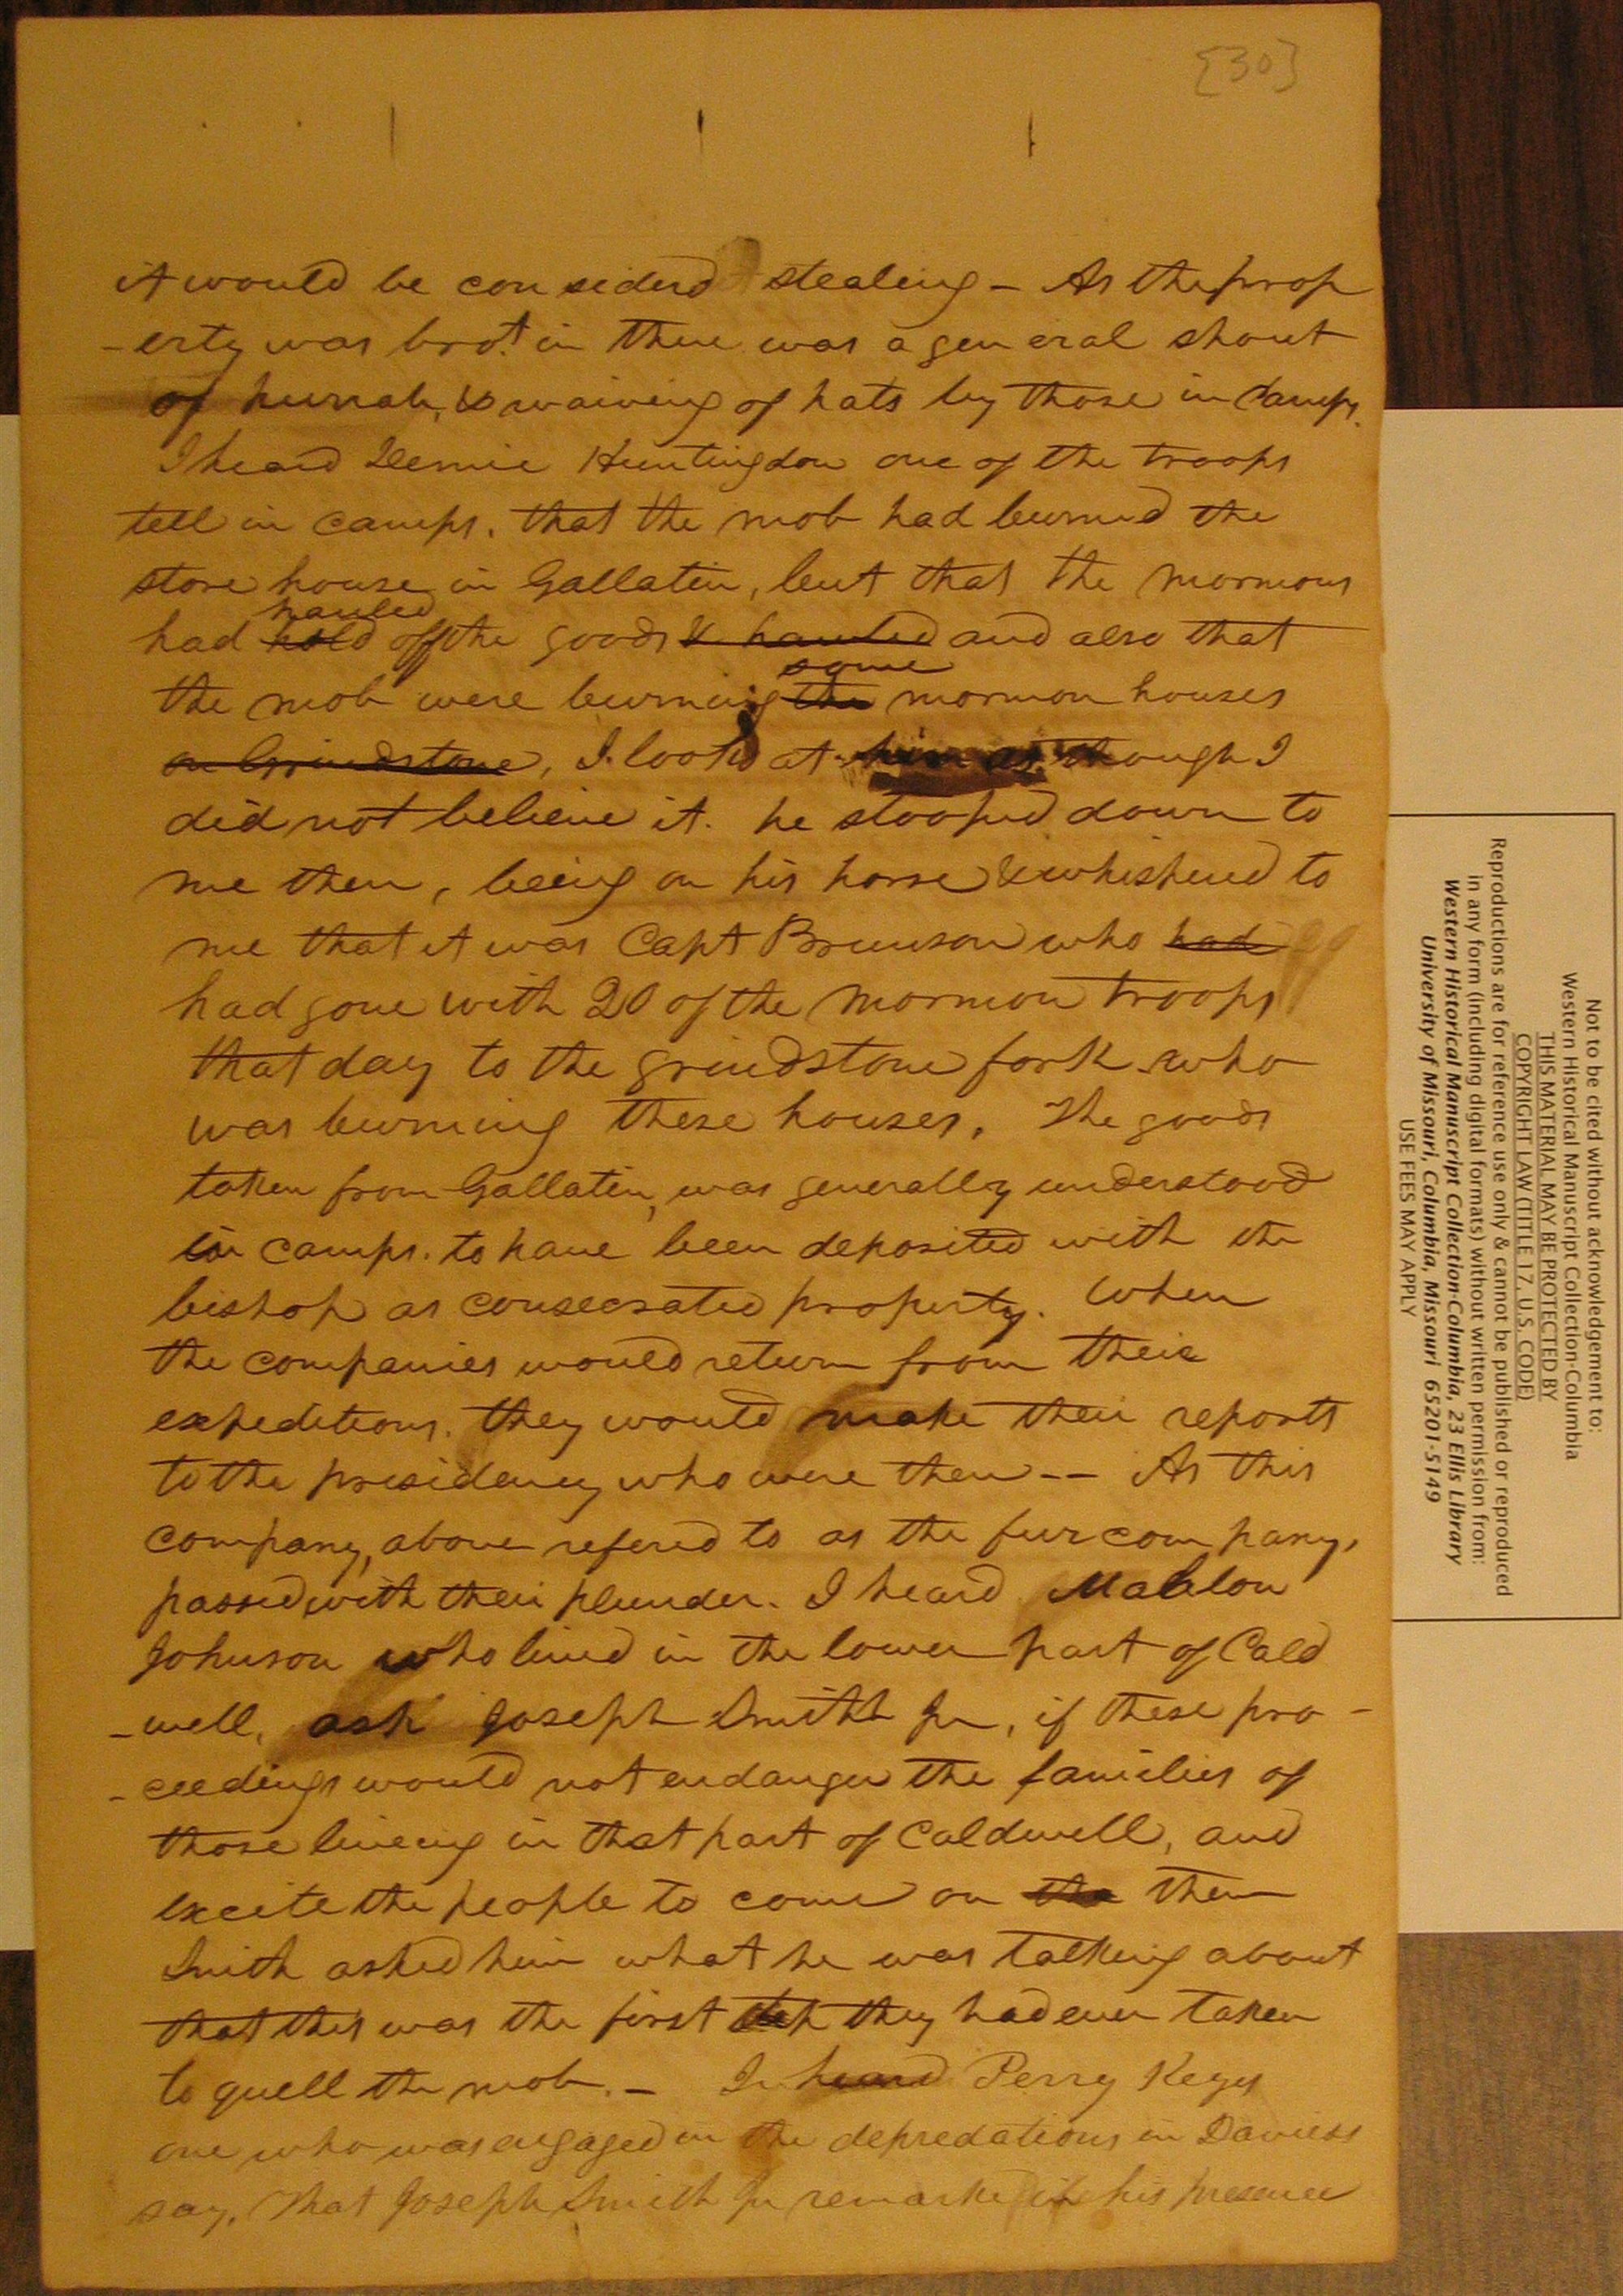 [30]
it would be considerd stealing - As the prop
-erty was brot. in there was a general shout
of hurrah, & waiving of hats by those in camps.
I heard Demie Huntingdon one of the troops
tell in camps. that the mob had burned the
store house in Gallatin, but that the mormons
hauled
had hold off the goods & hauled and also that
some
the mob were burning the mormon houses
on Grindstone, I look'd at him as though I
did not believe it. he stooped down to
me then, being on his horse & whispered to
me that it was Capt Brunson who had
had gone with 20 of the mormon troops
that day to the grindstone fork who
was burning these houses. The goods
taken from Gallatin, was generally understood
in camps. to have been deposited with the
bishop as consecrated property. When
the companies would return from their
expeditions. they would make their reports
to the presidency who were then -- As this
company, above refered to as the fur company,
passed with their plunder. I heard Mahlon
Johnson who lived in the lower part of Cald
-well, ask Joseph Smith Jr, if these pro-
-ceedings would not endanger the families of
those liveing in that part of Caldwell, and
excite the people to come on the them
Smith asked him what he was talking about
that this was the first step they had ever taken
to quell the mob. - I heard Perry Keyes
one who was engaged in the depredations in Daviess
say, that Joseph Smith Jr remarked in his presence
Not to be cited without acknowledgement to:
Western Historical Manuscript Collection-Columbia
THIS MATERIAL MAY BE PROTECTED BY
COPYRIGHT LAW (TITLE 17, U.S. CODE)
Reproductions are for reference use only & cannot be published or reproduced
in any form (including digital formats) without written permission from:
Western Historical Manuscript Collection-Columbia, 23 Ellis Library
University of Missouri, Columbia, Missouri 65201-5149
USE FEES MAY APPLY